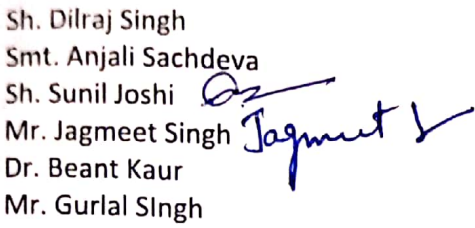 Sh. Dilraj Singh
Smt. Anjali Sachdeva
Sh. Sunil Joshi
Mr. Jagmeet Singh Jagmeet S
Dr. Beant Kaur
Mr. Gurlal SIngh